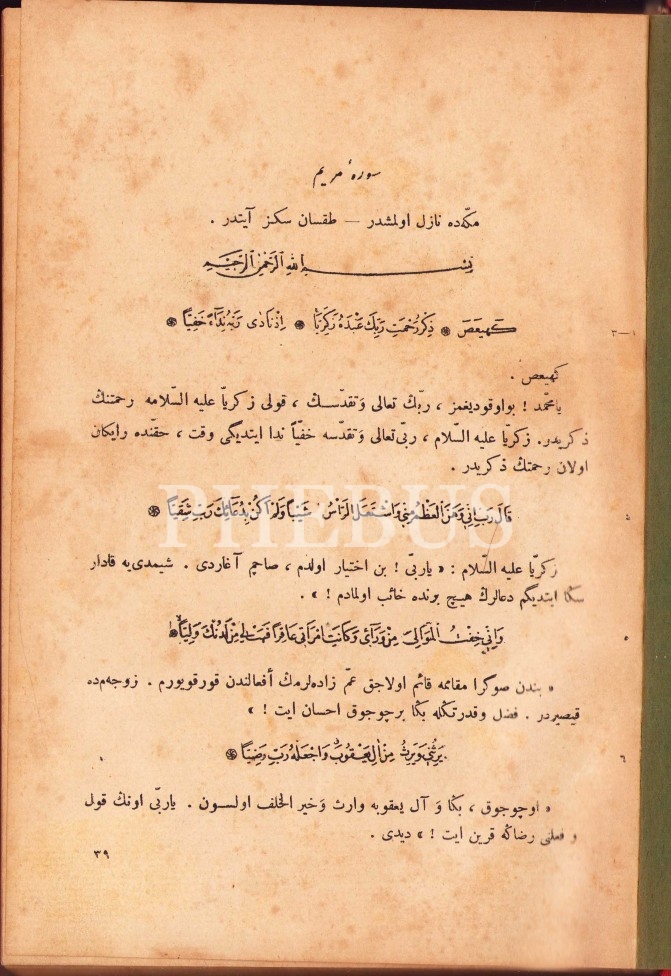 سورهٔ مريم
مكّه‌ده نازل اولمشدر — طقسان سكز آيتدر .
بِسْمِ اللهِ الرَّحْمٰنِ الرَّحِيمِ
كٓهٰيٰعٓصٓ ۞ ذِكْرُ رَحْمَتِ رَبِّكَ عَبْدَهُ زَكَرِيَّا ۞ اِذْ نَادٰى رَبَّهُ نِدَٓاءً خَفِيًّا ۞
١—٣
كهيعص .
يامحمّد ! بواوقوديغمز ، ربّك تعالى وتقدّسك ، قولى زكريّا عليه السّلامه رحمتنك
ذكريدر. زكريّا عليه السّلام ، ربّى تعالى وتقدّسه خفيّاً ندا ايتديگى وقت ، حقنده رايكان
اولان رحمتك ذكريدر .
قَالَ رَبِّ اِنّٖى وَهَنَ الْعَظْمُ مِنّٖى وَاشْتَعَلَ الرَّاْسُ شَيْبًا وَلَمْ اَكُنْ بِدُعَٓائِكَ رَبِّ شَقِيًّا ۞
زكريّا عليه السّلام : « ياربّى ! بن اختيار اولدم ، صاچم آغاردى . شيمدى‌يه قادار
سكا ايتديگم دعالرك هيچ برنده خائب اولمادم ! » .
وَاِنّٖى خِفْتُ الْمَوَالِىَ مِنْ وَرَٓائٖى وَكَانَتِ امْرَاَتٖى عَاقِرًا فَهَبْ لٖى مِنْ لَدُنْكَ وَلِيًّا ۞
« بندن صوكرا مقامه قائم اولاجق عمّ زاده‌لرمك أفعالندن قورقويورم . زوجه‌م‌ده
قيصيردر . فضل وقدرتكله بكا برچوجوق احسان ايت ! »
يَرِثُنٖى وَيَرِثُ مِنْ اٰلِ يَعْقُوبَ وَاجْعَلْهُ رَبِّ رَضِيًّا ۞
٦
« اوچوجوق ، بكا و آل يعقوبه وارث وخير الخلف اولسون . ياربّى اونك قولى
و فعلنى رضاكه قرين ايت ! » ديدى .
٣٩
PHEBUS